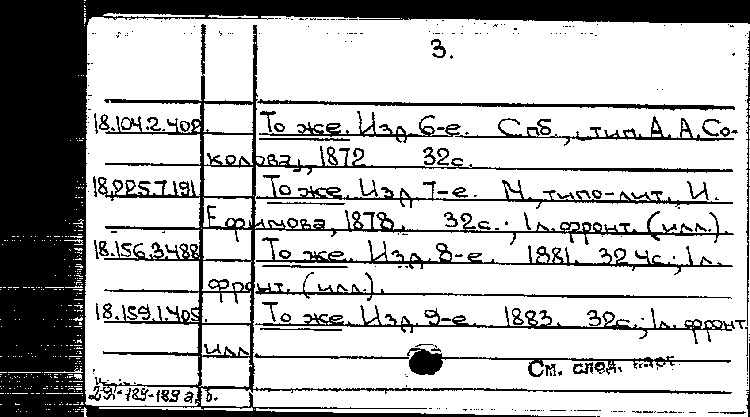 3.
18.104.2.402. То же. Изд. 6-е. Спб., тип. А. А. Со-
колова, 1872. 32с.
18.225.7.191 То же. Изд. 7-е. М., типо-лит. И.
Ефимова, 1878. 32с.; 1л. фронт. (илл.).
18.156.3.488 То же. Изд. 8-е. 1881. 32,4с.; 1л.
фронт. (илл.).
18.159.1.405. То же. Изд. 9-е. 1883. 32с.; 1л. фронт.
илл.
См. след. карт